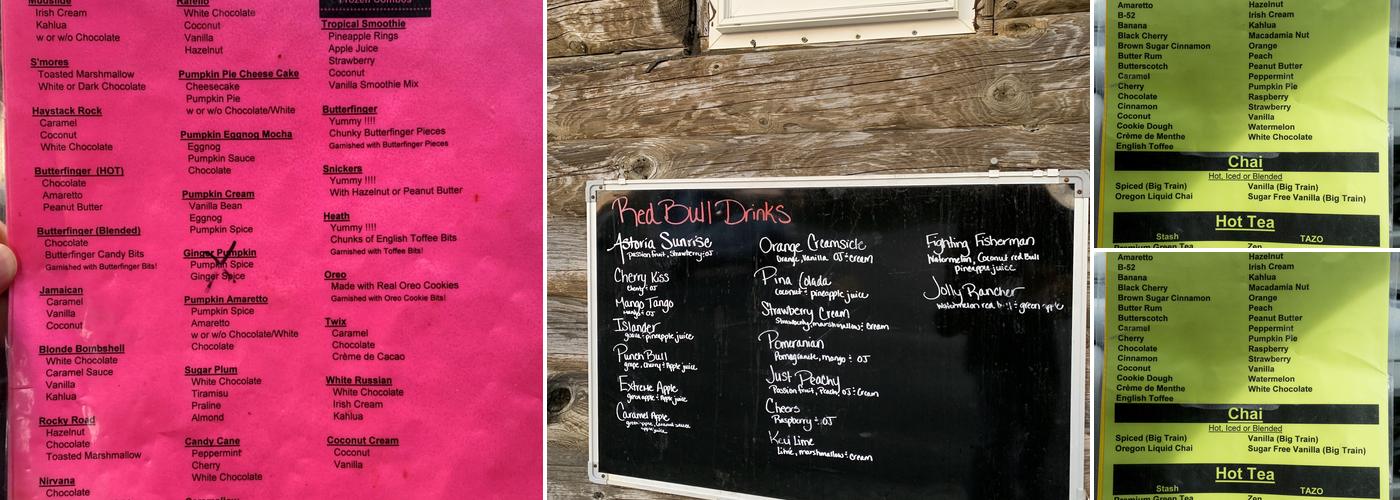 Mudslide
Irish Cream
Kahlua
w or w/o Chocolate
S'mores
Toasted Marshmallow
White or Dark Chocolate
Haystack Rock
Caramel
Coconut
White Chocolate
Butterfinger (HOT)
Chocolate
Amaretto
Peanut Butter
Butterfinger (Blended)
Chocolate
Butterfinger Candy Bits
Garnished with Butterfinger Bits!
Jamaican
Caramel
Vanilla
Coconut
Blonde Bombshell
White Chocolate
Caramel Sauce
Vanilla
Kahlua
Rocky Road
Hazelnut
Chocolate
Toasted Marshmallow
Nirvana
Chocolate
Rafello
White Chocolate
Coconut
Vanilla
Hazelnut
Pumpkin Pie Cheese Cake
Cheesecake
Pumpkin Pie
w or w/o Chocolate/White
Pumpkin Eggnog Mocha
Eggnog
Pumpkin Sauce
Chocolate
Pumpkin Cream
Vanilla Bean
Eggnog
Pumpkin Spice
Ginger Pumpkin
Pumpkin Spice
Ginger Spice
Pumpkin Amaretto
Pumpkin Spice
Amaretto
w or w/o Chocolate/White
Chocolate
Sugar Plum
White Chocolate
Tiramisu
Praline
Almond
Candy Cane
Peppermint
Cherry
White Chocolate
Frozen Combos
Tropical Smoothie
Pineapple Rings
Apple Juice
Strawberry
Coconut
Vanilla Smoothie Mix
Butterfinger
Yummy !!!!
Chunky Butterfinger Pieces
Garnished with Butterfinger Pieces
Snickers
Yummy !!!!
With Hazelnut or Peanut Butter
Heath
Yummy !!!!
Chunks of English Toffee Bits
Garnished with Toffee Bits!
Oreo
Made with Real Oreo Cookies
Garnished with Oreo Cookie Bits!
Twix
Caramel
Chocolate
Crème de Cacao
White Russian
White Chocolate
Irish Cream
Kahlua
Coconut Cream
Coconut
Vanilla
Red Bull Drinks
Astoria Sunrise
passion fruit, Strawberry: OJ
Cherry Kiss
cherry : OJ
Mango Tango
mango : OJ
Islander
guava : pineapple juice
Punch Bull
grape, cherry : Apple juice
Extreme Apple
green apple : Apple juice
Caramel Apple
green apple, caramel sauce
apple juice
Orange Creamsicle
Orange, Vanilla, OJ : cream
Pina Colada
coconut : pineapple juice
Strawberry Cream
Strawberry, marshmallow : cream
Pomeranian
Pomegranate, mango : OJ
Just Peachy
Passion fruit, Peach, OJ : Cream
Cheers
Raspberry : OJ
Key Lime
Lime, marshmallow : cream
Fighting Fisherman
Watermelon, Coconut red Bull
pineapple juice
Jolly Rancher
Watermelon red bull : green apple
Amaretto
B-52
Banana
Black Cherry
Brown Sugar Cinnamon
Butter Rum
Butterscotch
Caramel
Cherry
Chocolate
Cinnamon
Coconut
Cookie Dough
Crème de Menthe
English Toffee
Hazelnut
Irish Cream
Kahlua
Macadamia Nut
Orange
Peach
Peanut Butter
Peppermint
Pumpkin Pie
Raspberry
Strawberry
Vanilla
Watermelon
White Chocolate
Chai
Hot, Iced or Blended
Spiced (Big Train)
Vanilla (Big Train)
Oregon Liquid Chai
Sugar Free Vanilla (Big Train)
Hot Tea
Stash
TAZO
Premium Green Tea
Zen
Amaretto
B-52
Banana
Black Cherry
Brown Sugar Cinnamon
Butter Rum
Butterscotch
Caramel
Cherry
Chocolate
Cinnamon
Coconut
Cookie Dough
Crème de Menthe
English Toffee
Hazelnut
Irish Cream
Kahlua
Macadamia Nut
Orange
Peach
Peanut Butter
Peppermint
Pumpkin Pie
Raspberry
Strawberry
Vanilla
Watermelon
White Chocolate
Chai
Hot, Iced or Blended
Spiced (Big Train)
Vanilla (Big Train)
Oregon Liquid Chai
Sugar Free Vanilla (Big Train)
Hot Tea
Stash
TAZO
Premium Green Tea
Zen